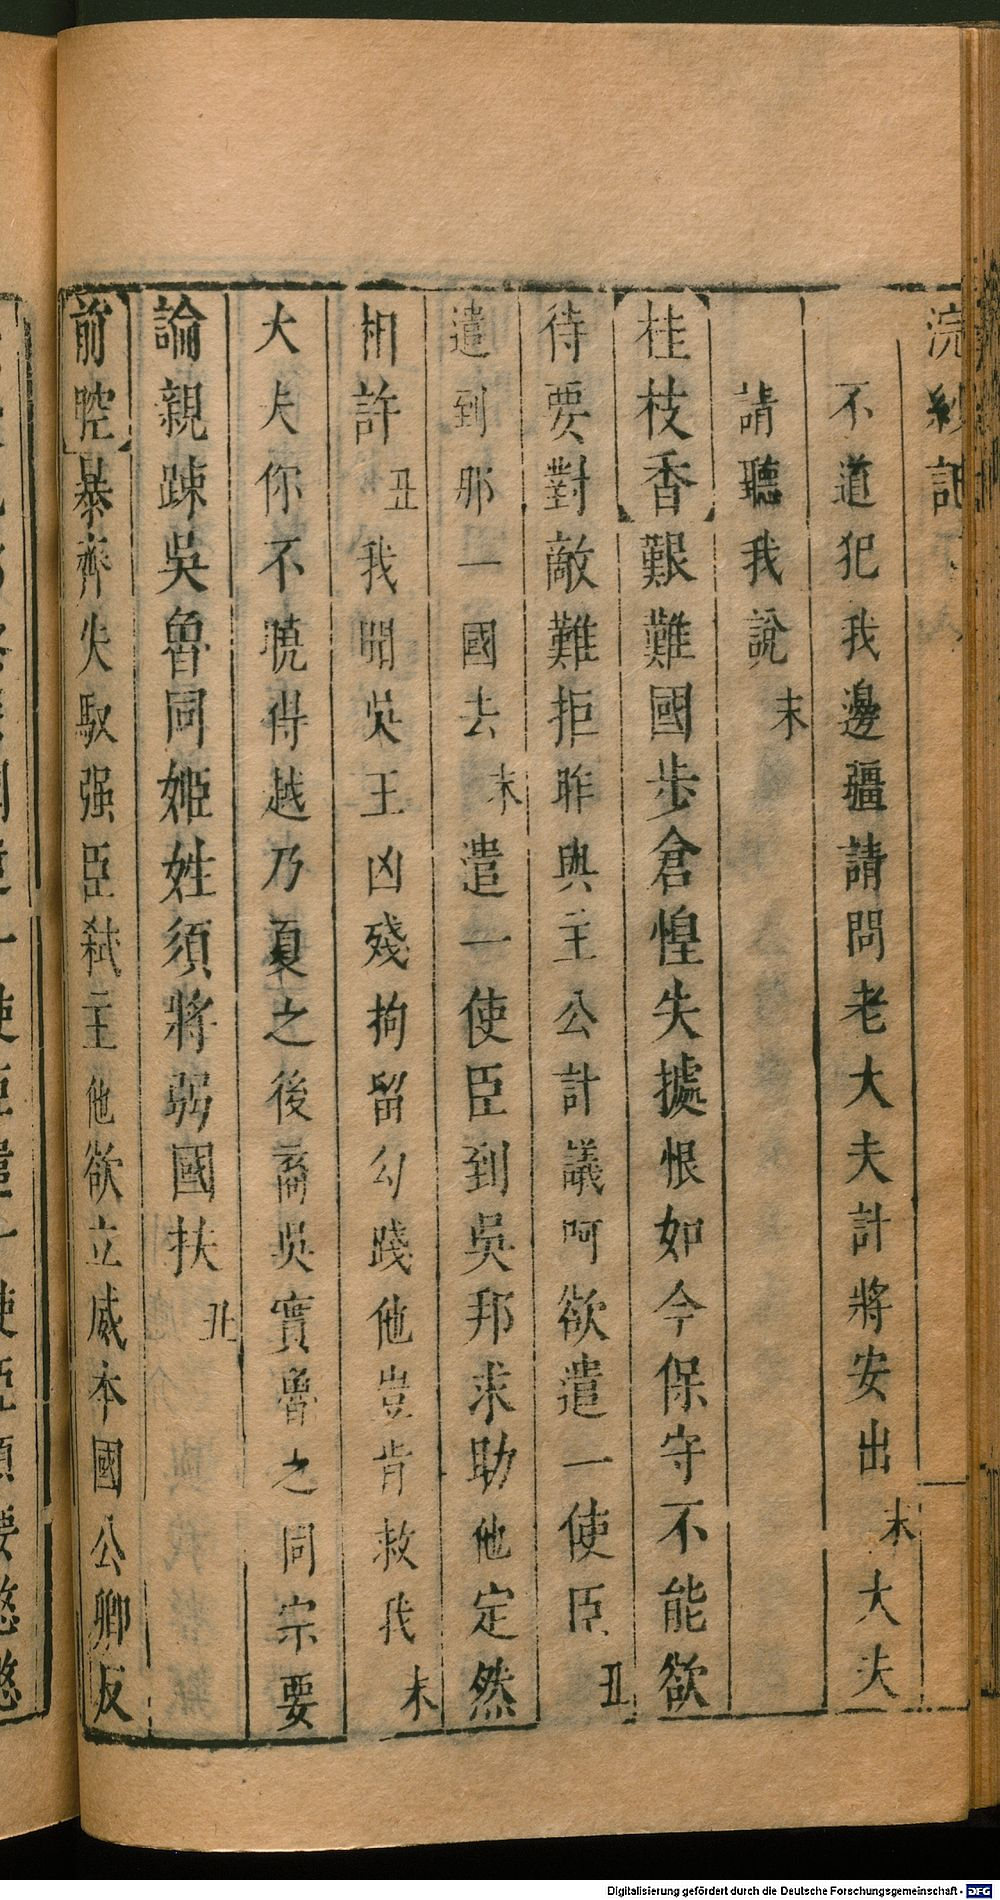 浣紗記
不道犯我邊疆請問老大夫計將安出末大夫
請聽我說末
桂枝香艱難國步倉惶失據恨如今保守不能欲
待要對敵難拒昨與主公計議呵欲遣一使臣丑
遣到那一國去末遣一使臣到吳邦求助他定然
相許丑我聞吳王凶殘拘留勾踐他豈肯救我末
大夫你不曉得越乃夏之後裔吳實魯之同宗要
論親踈吳魯同姬姓須將弱國扶丑
前腔暴齊失馭强臣弑主他欲立威本國公卿反
Digitalisierung gefördert durch die Deutsche Forschungsgemeinschaft - DFG